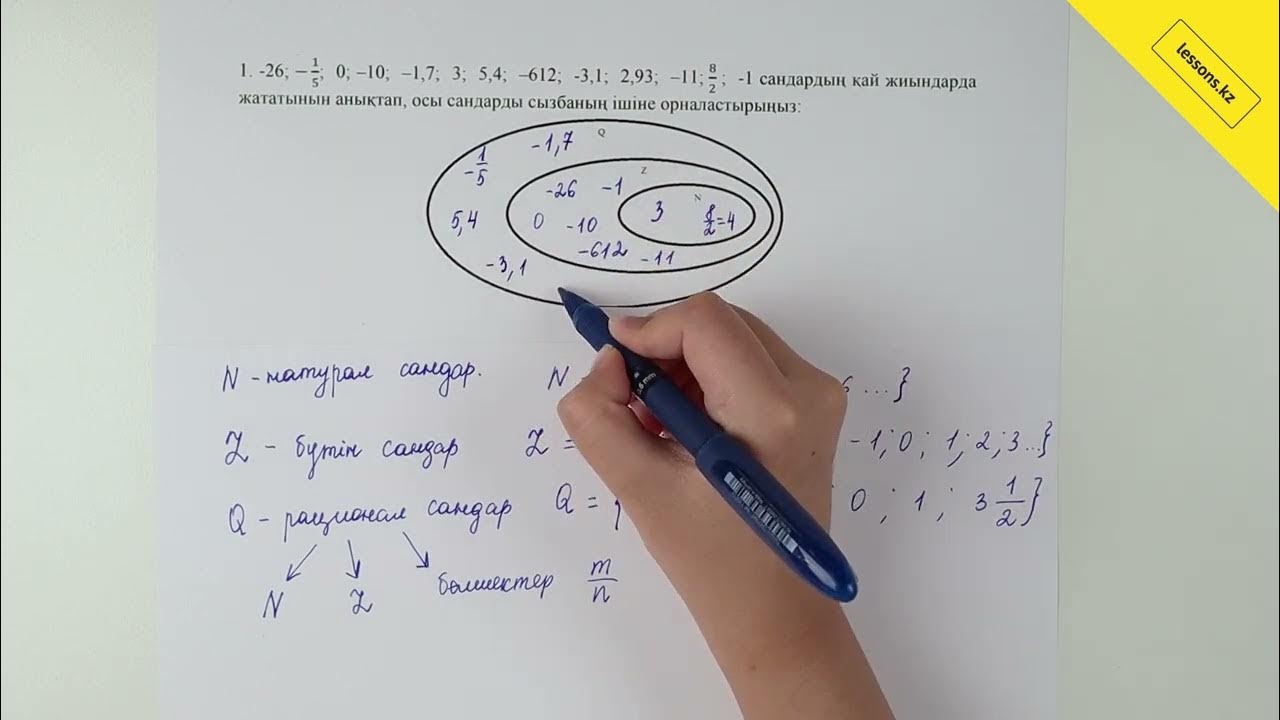 lessons.kz
1. -26; −1/5; 0; –10; –1,7; 3; 5,4; –612; -3,1; 2,93; –11; 8/2; -1 сандардың қай жиындарда
жататынын анықтап, осы сандарды сызбаның ішіне орналастырыңыз:
Q
-1,7
-1/5
Z
-26 -1
N
5,4 0 -10 3 8/2=4
-612 -11
-3,1
N - натурал сандар. N 6 ...}
Z - бүтін сандар Z = -1; 0; 1; 2; 3...}
Q - рационал сандар Q = { 0 ; 1 ; 3 1/2}
N Z бөлшектер m/n
0,6 mm